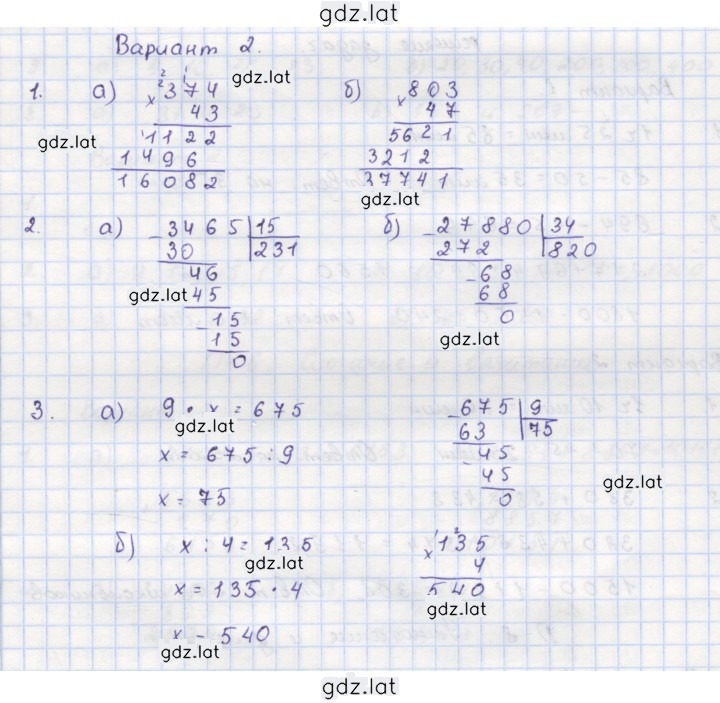 gdz.lat
Вариант 2.
gdz.lat
1. а) 2 1
2
× 374
43
1122
1496
16082
gdz.lat
б) × 803
47
5621
3212
37741
gdz.lat
2. а) - 3465 | 15
30 | 231
46
gdz.lat 45
- 15
15
0
б) - 27880 | 34
272 | 820
- 68
68
0
gdz.lat
3. а) 9 · x = 675
gdz.lat
x = 675 : 9
x = 75
- 675 | 9
63 | 75
- 45
45
0
gdz.lat
б) x : 4 = 135
gdz.lat
x = 135 · 4
x = 540
gdz.lat
1 2
× 135
4
540
gdz.lat
gdz.lat